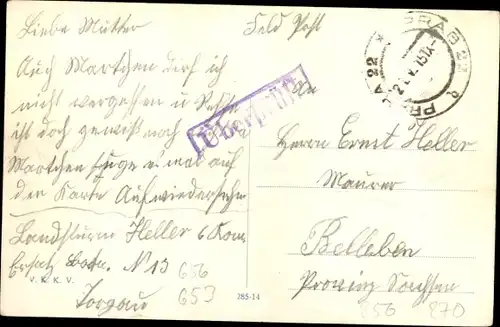 Liebe Mutter
Feld Post
Auch Martchen darf ich
nicht vergessen u
ist doch gewiß noch
Martchen mal auf
der Karte Aufwiedersehn
Landsturm Heller 6 Kom
Ersatz Batn. N 13
Torgau
636
653
V. K. K. V.
285-14
Überprüft
PRAG 22
An
Herrn Ernst Heller
Maurer
Belleben
Provinz Sachsen
856 870